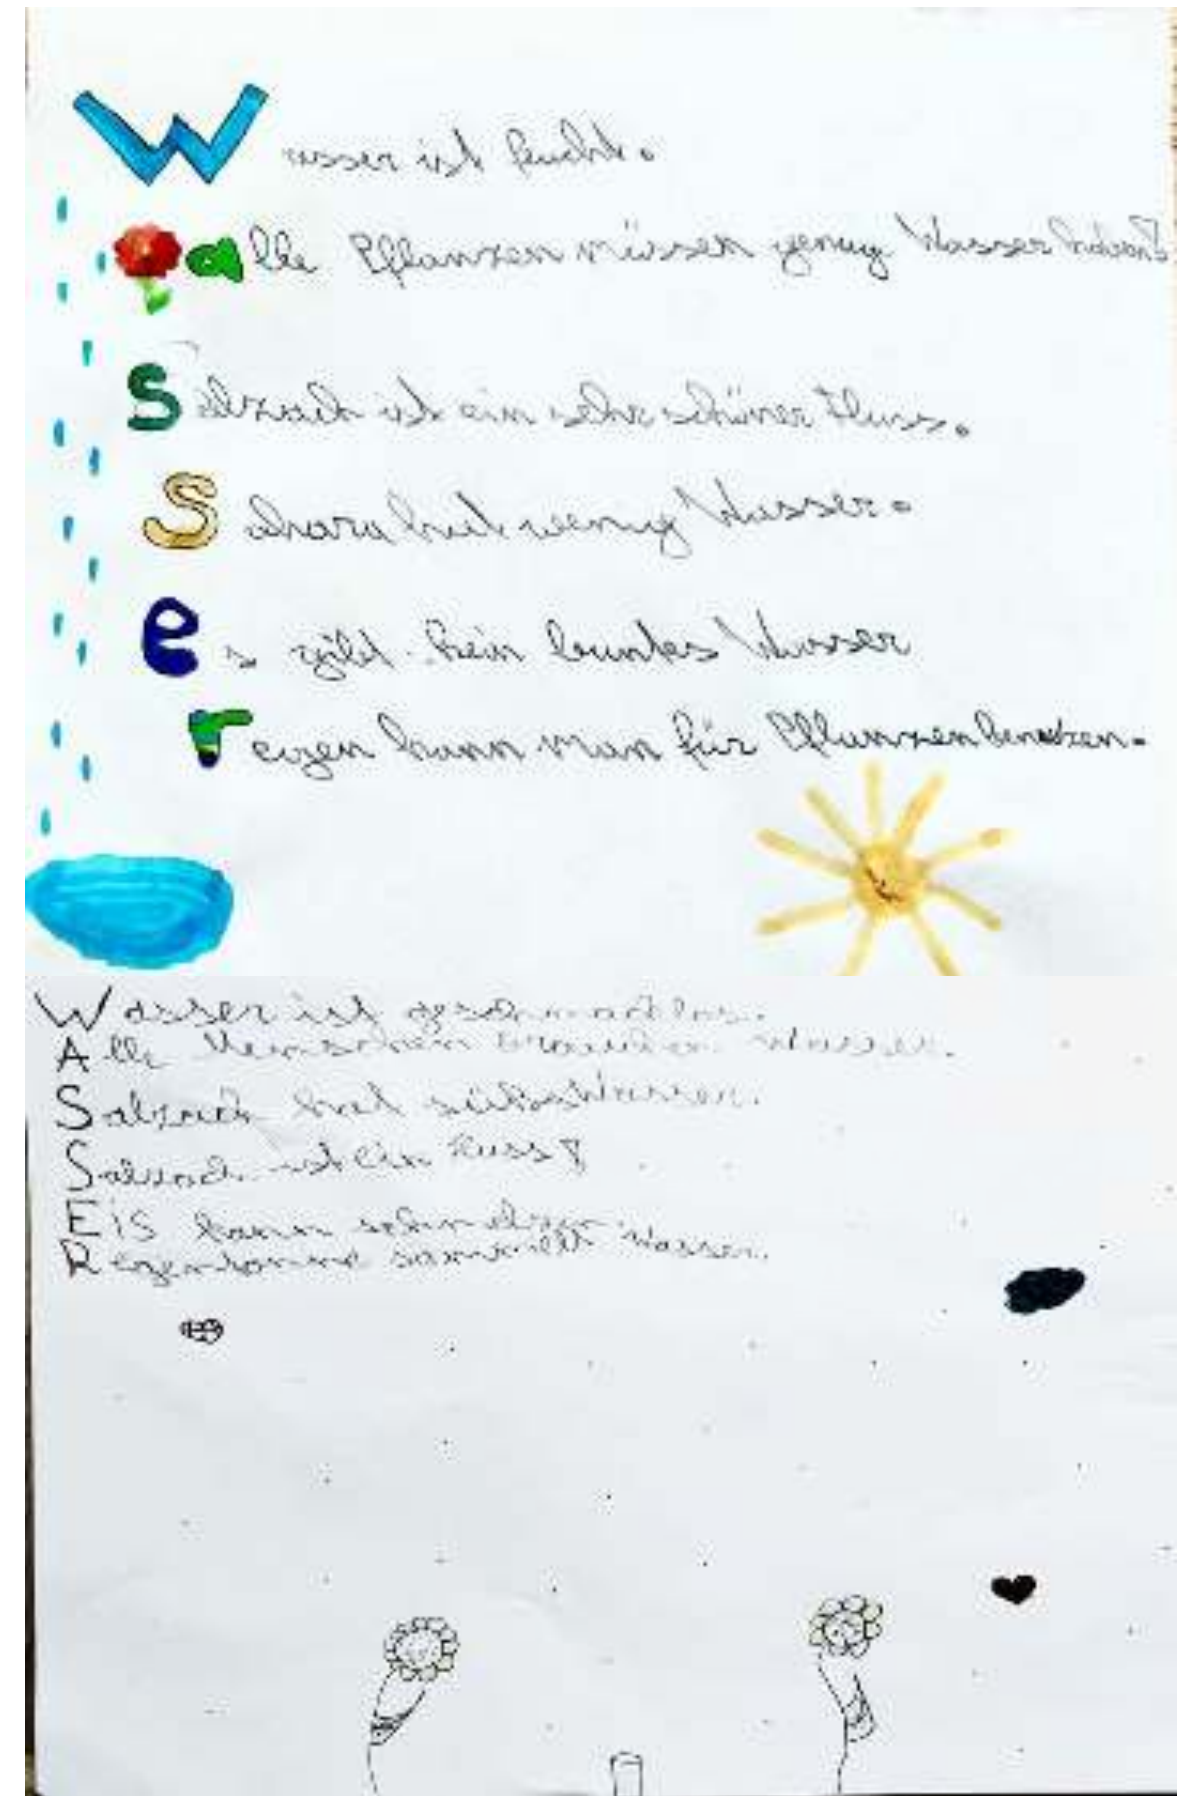 Wasser ist feucht.
alle Pflanzen müssen genug Wasser haben!
Salzach ist ein sehr schöner Fluss.
Sahara hat wenig Wasser.
es gibt kein buntes Wasser
regen kann man für Pflanzen benutzen.
Wasser ist geschmacklos.
Alle Menschen brauchen Wasser.
Salzach hat süßes Wasser.
Salzach ist ein Fluss!
EiS kann schmelzen.
Regentonne sammelt Wasser.